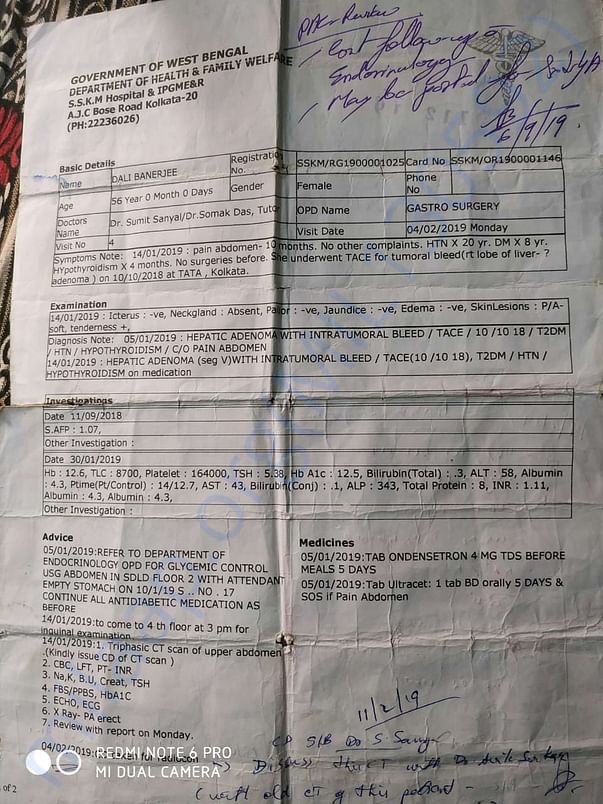 GOVERNMENT OF WEST BENGAL
DEPARTMENT OF HEALTH & FAMILY WELFARE
S.S.K.M Hospital & IPGME&R
A.J.C Bose Road Kolkata-20
(PH:22236026)
PAC - Review
Endocrinology
May be posted for
6/9/19.
Basic Details
Name DALI BANERJEE Registration No. SSKM/RG1900001025 Card No SSKM/OR1900001146
Age 56 Year 0 Month 0 Days Gender Female Phone No
Doctors Name Dr. Sumit Sanyal/Dr.Somak Das, Tutor OPD Name GASTRO SURGERY
Visit No 4 Visit Date 04/02/2019 Monday
Symptoms Note: 14/01/2019 : pain abdomen- 10 months. No other complaints. HTN X 20 yr. DM X 8 yr.
HYpothyroidism X 4 months. No surgeries before. She underwent TACE for tumoral bleed(rt lobe of liver- ?
adenoma ) on 10/10/2018 at TATA , Kolkata.
Examination
14/01/2019 : Icterus : -ve, Neckgland : Absent, Pallor : -ve, Jaundice : -ve, Edema : -ve, SkinLesions : P/A-
soft, tenderness +,
Diagnosis Note: 05/01/2019 : HEPATIC ADENOMA WITH INTRATUMORAL BLEED / TACE / 10 /10 18 / T2DM
/ HTN / HYPOTHYROIDISM / C/O PAIN ABDOMEN
14/01/2019 : HEPATIC ADENOMA (seg V)WITH INTRATUMORAL BLEED / TACE(10 /10 18), T2DM / HTN /
HYPOTHYROIDISM on medication
Investigations
Date 11/09/2018
S.AFP : 1.07,
Other Investigation :
Date 30/01/2019
Hb : 12.6, TLC : 8700, Platelet : 164000, TSH : 5.38, Hb A1c : 12.5, Bilirubin(Total) : .3, ALT : 58, Albumin
: 4.3, Ptime(Pt/Control) : 14/12.7, AST : 43, Bilirubin(Conj) : .1, ALP : 343, Total Protein : 8, INR : 1.11,
Albumin : 4.3, Albumin : 4.3,
Other Investigation :
Advice
05/01/2019:REFER TO DEPARTMENT OF
ENDOCRINOLOGY OPD FOR GLYCEMIC CONTROL
USG ABDOMEN IN SDLD FLOOR 2 WITH ATTENDANT
EMPTY STOMACH ON 10/1/19 S .. NO . 17
CONTINUE ALL ANTIDIABETIC MEDICATION AS
BEFORE
14/01/2019:to come to 4 th floor at 3 pm for
inguinal examination
14/01/2019:1. Triphasic CT scan of upper abdomen
.(Kindly issue CD of CT scan )
2. CBC, LFT, PT- INR
3. Na,K, B.U, Creat, TSH
4. FBS/PPBS, HbA1C
5. ECHO, ECG
6. X Ray- PA erect
7. Review with report on Monday.
04/02/2019:
Medicines
05/01/2019:TAB ONDENSETRON 4 MG TDS BEFORE
MEALS 5 DAYS
05/01/2019:Tab Ultracet: 1 tab BD orally 5 DAYS &
SOS if Pain Abdomen
11/2/19
S/B Dr S.
Discuss the CT with Dr.
(with old CT of this patient -
of 2
REDMI NOTE 6 PRO
MI DUAL CAMERA